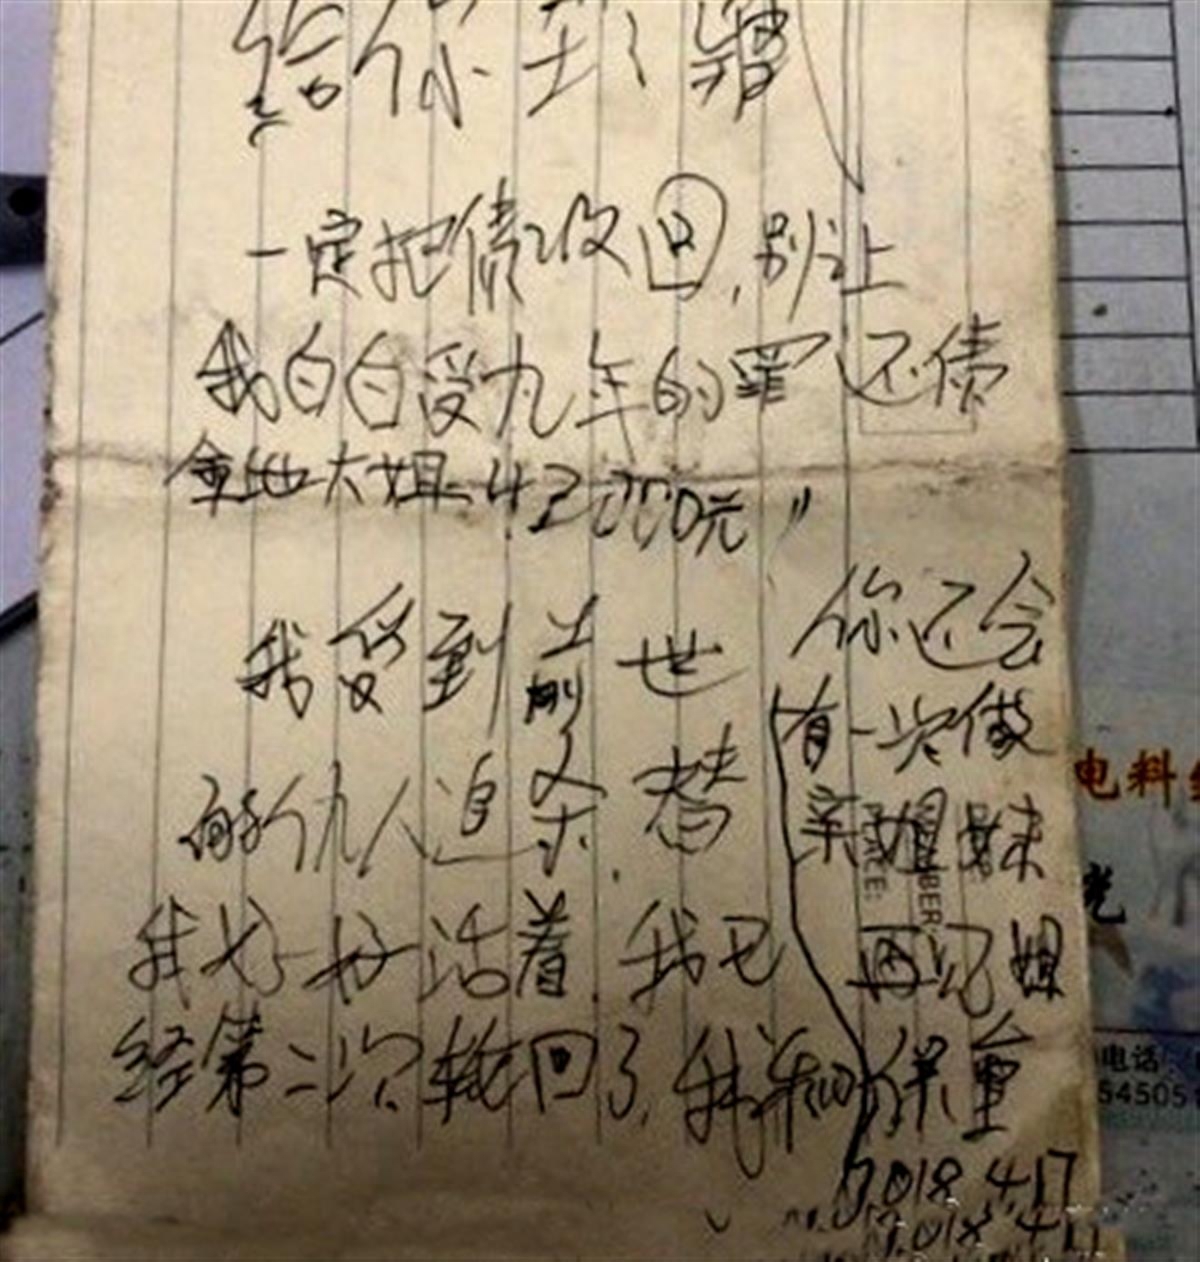 给你
一定把债收回,别让
我白白受九年的罪 还债
金艳大姐 42000元"
我受到上
前世
的仇人追杀,替
我好好活着,我已
经第二次轮回了,我和
你还会
有一次做
亲姐妹
再见姐
保重
2018 4.17
2018 4.17
电料
光
电话
545051